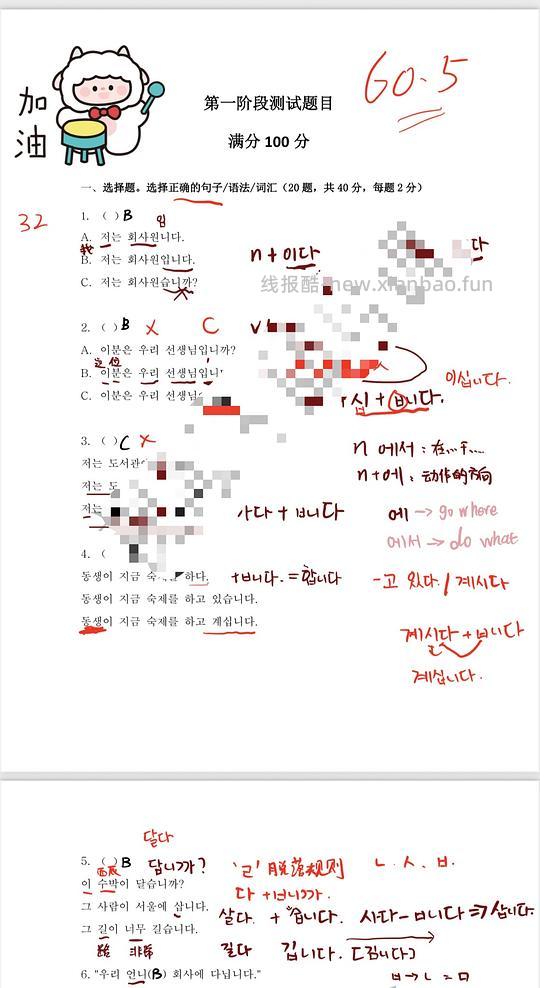 加
油
第一阶段测试题目
60.5
满分 100 分
一、选择题。选择正确的句子/语法/词汇（20 题，共 40 分，每题 2 分）
32
1. （ ）B
입
A. 저는 회사원니다.
我
B. 저는 회사원입니다.
n + 이다
다
C. 저는 회사원습니까?
线报酷 new.xianbao.fun
2. （ ）B X C
V
A. 이분은 우리 선생님입니까?
这位
B. 이분은 우리 선생님입니
이십니다.
C. 이분은 우리 선생님
십 + ㅂ니다.
3. （ ）C X
n 에서 : 在...干...
저는 도서관
n+에 : 动作的方向
저는 도
저는
사다 + ㅂ니다
에 → go where
에서 → do what
4. （
동생이 지금 숙제를 하다.
+ㅂ니다. = 합니다
-고 있다 / 계시다
동생이 지금 숙제를 하고 있습니다.
동생이 지금 숙제를 하고 계십니다.
계시다 + ㅂ니다
계십니다.
달다
5. （ ）B 답니까?
'ㄹ' 脱落规则 ㄴ. ㅅ. ㅂ.
西瓜
이 수박이 달습니까?
다 + ㅂ니까.
그 사람이 서울에 삽니다.
살다. + 습니다. 사다-ㅂ니다 ⇒ 삽니다.
그 길이 너무 길습니다.
路 非常 길다 깁니다. [김니다]
6. "우리 언니(B) 회사에 다닙니다."
ㅂ → ㄴ = ㅁ